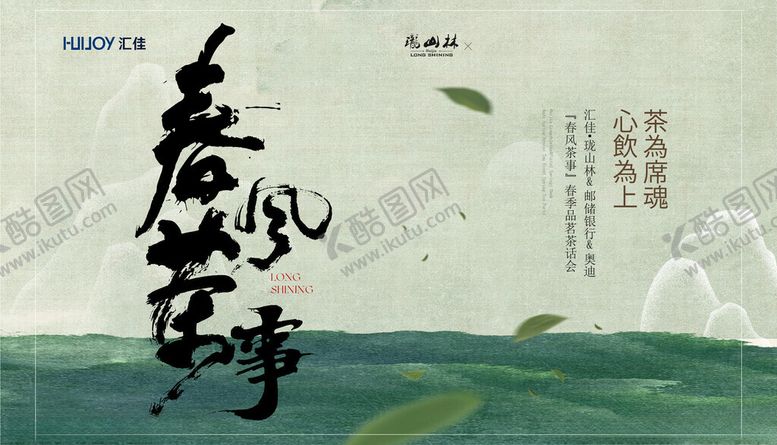 HUIJOY 汇佳
瓏山林 ×
Huijia
LONG SHINING
春风茶事
LONG
SHINING
茶為席魂
心飲為上
汇佳•珑山林&邮储银行&奥迪
『春风茶事』春季品茗茶话会
酷图网
www.ikutu.com
酷图网
www.ikutu.com
酷图网
www.ikutu.com